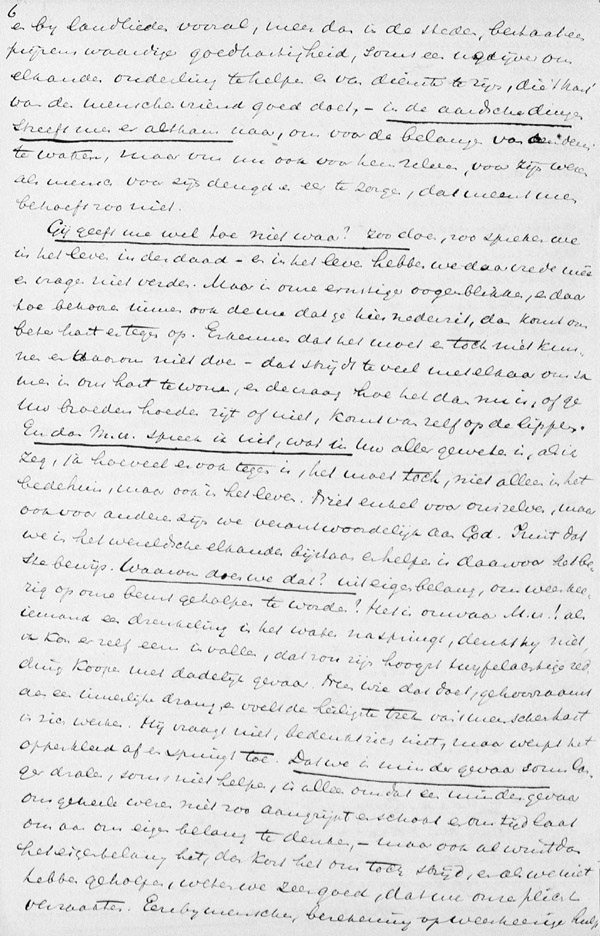 6
en by landlieden vooral, meer dan in de steden, bestaat een
prijzenswaardige goedhartigheid, soms een wedijver om
elkander onderling te helpen en van dienste te zijn, die 't hart
van den menschenvriend goed doet, – in de aardsche dingen
streeft men er althans naar, om voor de belangen van anderen
te waken, maar om nu ook voor hem zelven, voor zijn wezen
als mensch voor zijn deugd en eer te zorgen, dat meent men
behoeft zoo niet.
Gij geeft me wel toe niet waar? zoo doen, zoo spreken we
in het leven inderdaad – en in het leven hebben we daar vrede mee
en vragen niet verder. Maar in onze ernstige oogenblikken, en daar
toe behooren immers ook deze dat ge hier nederzit, dan komt ons
beter hart er tegen op. Erkennen dat het moet en toch niet kun-
nen en daarom niet doen – dat strijdt te veel met elkaar om sa
men in ons hart te wonen, en de vraag hoe het dan nu is, of ge
Uw broeders hoeder zijt of niet, komt van zelf op de lippen.
En dan M.H. spreek ik uit, wat in Uw aller geweten is, als ik
zeg, ja hoeveel er ook tegen is, het moet toch, niet alleen in het
bedehuis, maar ook in het leven. Niet enkel voor ons zelven, maar
ook voor anderen zijn we verantwoordelijk aan God. Juist dat
we in het wereldsche elkander bijstaan en helpen is daarvoor het be-
ste bewijs. Waarom doen we dat? uit eigenbelang, om weerkee-
rig op onze beurt geholpen te worden? Het is onwaar M.H.! als
iemand een drenkeling in het water naspringt, denkt hy niet,
ik kon er zelf eens in vallen, dat zou zijn hoogst twyfelachtige red
ding koopen met dadelijk gevaar. Neen wie dat doet, gehoorzaamt
aan een innerlijken drang, en voelt de heiligste trek van 't menschenhart
in zich werken. Hij vraagt niet, bedenkt zich niet, maar werpt het
opperkleed af en springt toe. Dat we in minder gevaar soms lan-
ger dralen, soms niet helpen, is alleen omdat een minder gevaar
ons geheele wezen niet zoo aangrijpt en schokt en ons tijd laat
om aan ons eigen belang te denken, – maar ook al wint dan
het eigenbelang het, dan kost het ons toch strijd, en als we niet
hebben geholpen, weten we zeer goed, dat we onze plicht
verzaakten. Eerbymenschen, berekening op weerkeerige hulp